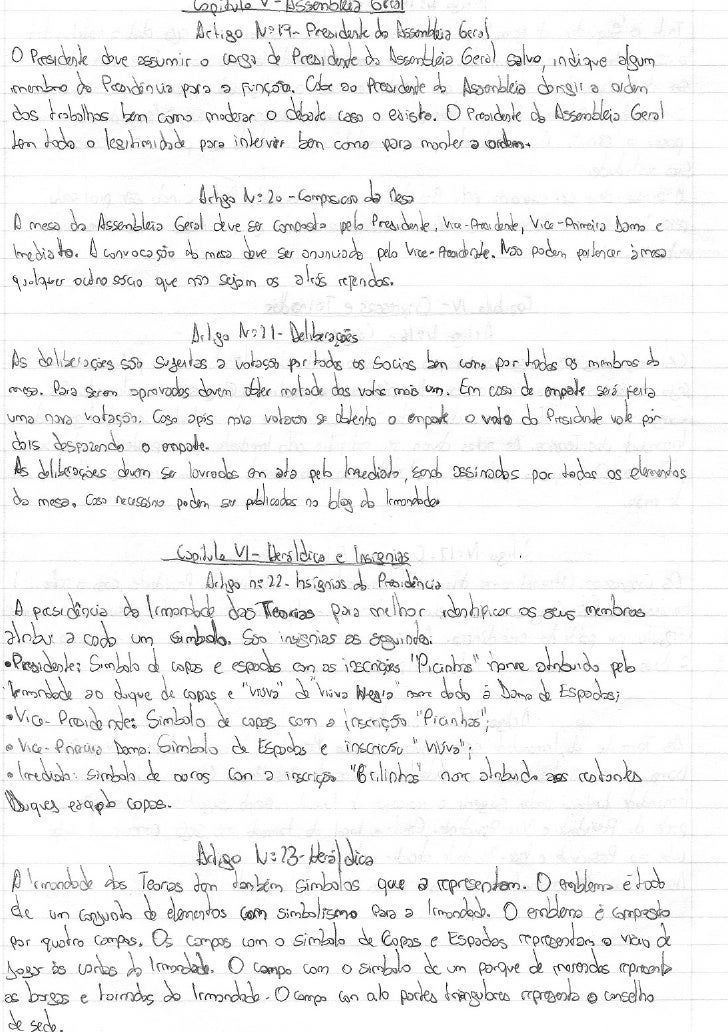 Capitulo V - Assembleia Geral
Artigo Nº19 - Presidente da Assembleia Geral
O Presidente deve assumir o cargo de Presidente da Assembleia Geral salvo, indique algum
membro da Presidência para a função. Cabe ao Presidente da Assembleia dirigir a ordem
dos trabalhos bem como moderar o debate caso o exista. O Presidente da Assembleia Geral
tem toda a legitimidade para intervir bem como para manter a ordem.
Artigo Nº20 - Composicao da Mesa
A mesa da Assembleia Geral deve ser composta pelo Presidente, Vice-Presidente, Vice-Primeira Dama e
Imediato. A convocação da mesa deve ser anunciada pelo Vice-Presidente. Não podem pertencer à mesa
qualquer outro sócio que não sejam os atrás referidos.
Artigo Nº21 - Deliberações
As deliberações são sujeitas a votação por todos os Socios bem como por todos os membros da
mesa. Para serem aprovadas devem obter metade dos votos mais um. Em caso de empate será feita
uma nova votação. Caso após nova votacao se obtenha o empate o voto do Presidente vale por
dois desfazendo o empate.
As deliberações devem ser lavradas em ata pelo Imediato, sendo assinadas por todos os elementos
da mesa. Caso necessário podem ser publicadas no blog da Irmandade
Capitulo VI - Heráldica e Insignias
Artigo nº 22 - Insígnias da Presidência
A presidência da Irmandade das Teorias para melhor identificar os seus membros
atribui a cada um simbolo. São insignias as seguintes:
• Presidente: Simbolo de copas e espadas com as inscrições "Picinhas" nome atribuido pela
Irmandade ao duque de copas e "viúva" de "viúva Negra" nome dado à Dama de Espadas;
• Vice-Presidente: Simbolo de copas com a inscrição "Picinhas";
• Vice-Primeira Dama: Simbolo de Espadas e inscricao "viúva";
• Imediato: simbolo de ouros com a inscrição "Brilinhos" nome atribuido aos restantes
Duques excepto copas.
Artigo Nº23 - Heráldica
A Irmandade das Teorias tem também simbolos que a representam. O emblema é todo
de um conjunto de elementos com simbolismo para a Irmandade. O emblema é composto
por quatro campos. Os campos com o simbolo de Copas e Espadas representam o vicio de
jogar às cartas da Irmandade. O campo com o simbolo de um parque de merendas representa
as borgas e tainadas da Irmandade. O campo com oito partes triangulares representa o conselho
de sedo.